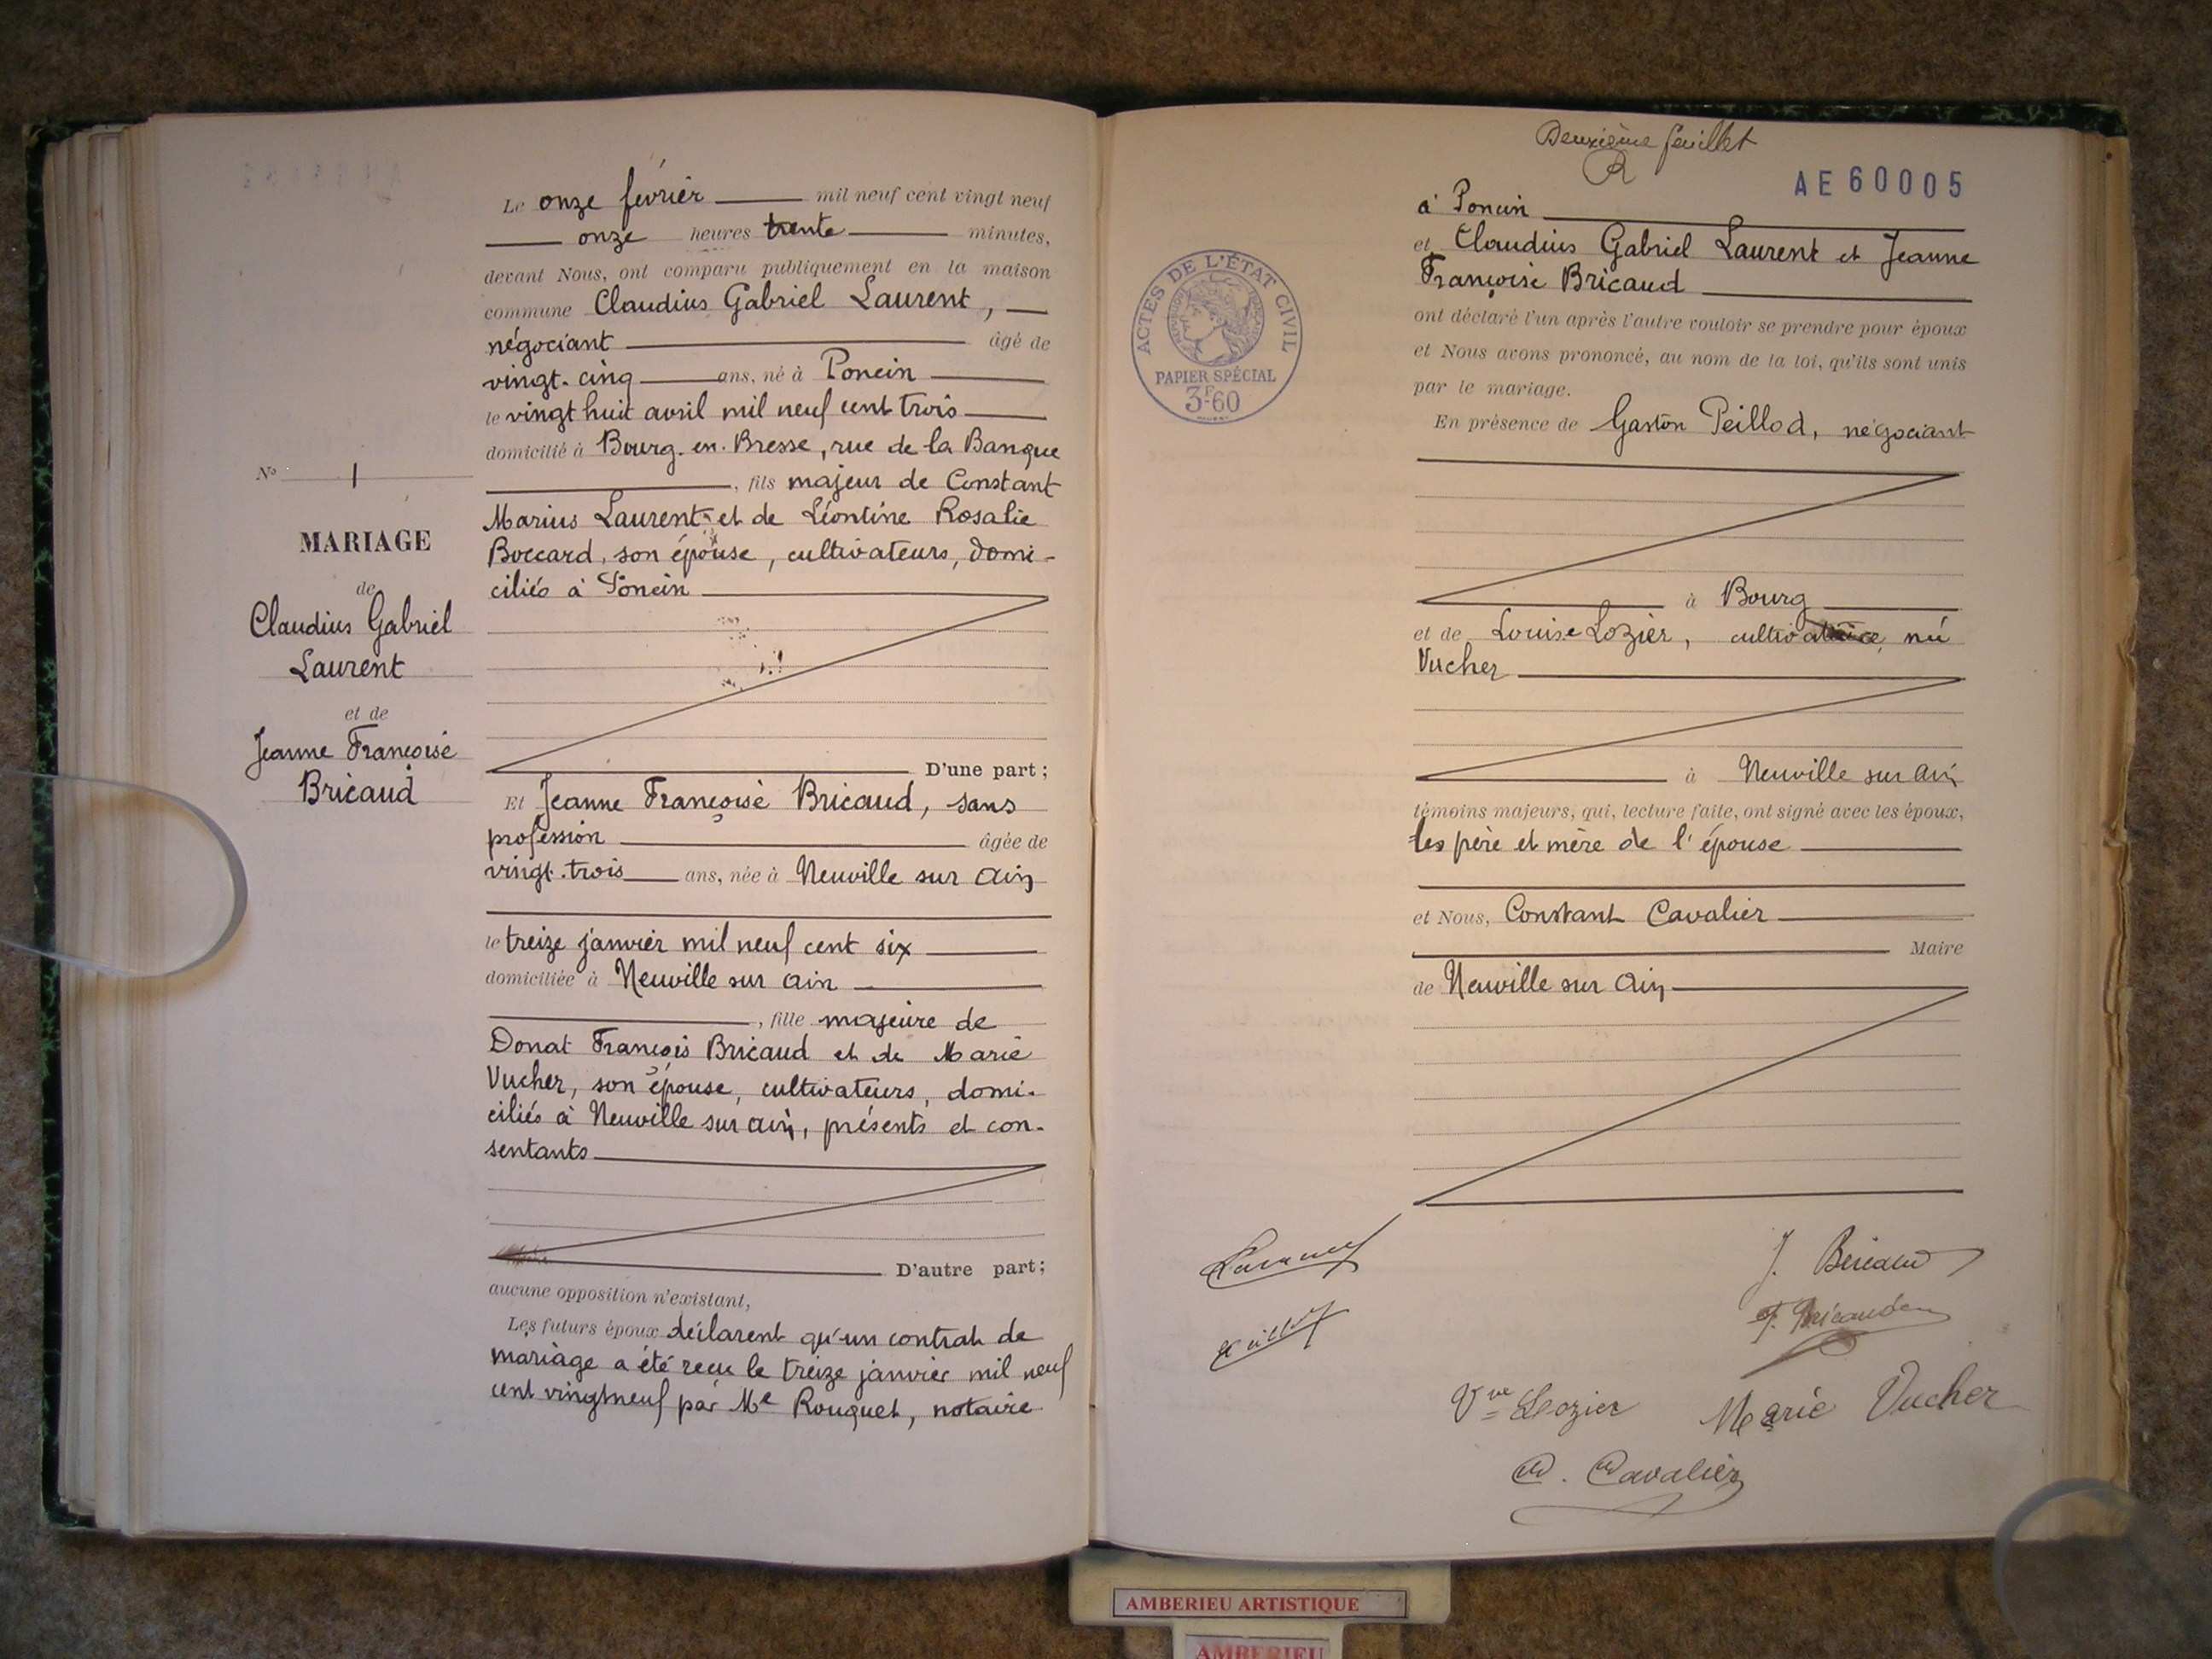 Le onze février mil neuf cent vingt neuf
onze heures trente minutes,
devant Nous, ont comparu publiquement en la maison
commune Claudius Gabriel Laurent,
négociant âgé de
vingt-cinq ans, né à Poncin
le vingt huit avril mil neuf cent trois
domicilié à Bourg-en-Bresse, rue de la Banque
, fils majeur de Constant
Marius Laurent et de Léontine Rosalie
Boccard, son épouse, cultivateurs, domi-
ciliés à Poncin
D'une part;
Et Jeanne Françoise Bricaud, sans
profession âgée de
vingt-trois ans, née à Neuville sur Ain
le treize janvier mil neuf cent six
domiciliée à Neuville sur Ain
, fille majeure de
Donat François Bricaud et de Marie
Vucher, son épouse, cultivateurs, domi-
ciliés à Neuville sur Ain, présents et con-
sentants
D'autre part;
aucune opposition n'existant,
Les futurs époux déclarent qu'un contrat de
mariage a été recu le treize janvier mil neuf
cent vingtneuf par Me Rouquet, notaire
N° 1
MARIAGE
de
Claudius Gabriel
Laurent
et de
Jeanne Françoise
Bricaud
Deuxième feuillet
AE 60005
ACTES DE L'ÉTAT CIVIL
PAPIER SPÉCIAL
3F60
à Poncin
et Claudius Gabriel Laurent et Jeanne
Françoise Bricaud
ont déclaré l'un après l'autre vouloir se prendre pour époux
et Nous avons prononcé, au nom de la loi, qu'ils sont unis
par le mariage.
En présence de Gaston Peillod, négociant
à Bourg
et de Louise Lozier, cultivatrice, née
Vucher
à Neuville sur Ain
témoins majeurs, qui, lecture faite, ont signé avec les époux,
les père et mère de l'épouse
et Nous, Constant Cavalier
Maire
de Neuville sur Ain
Laurent
J. Bricaud
Vve Lozier
Marie Vucher
C. Cavalier
AMBERIEU ARTISTIQUE
AMBERIEU